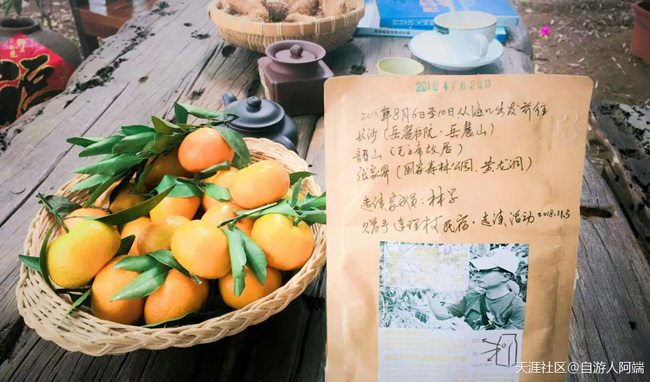 2018年7月29日
2018年8月6日至10日从海口出发前往
长沙(岳麓书院·岳麓山)
韶山(毛主席故居)
张家界(国家森林公园、黄龙洞)
林子
赠予 连理枝民宿·走读活动 2018.11.3
天涯社区@自游人阿端